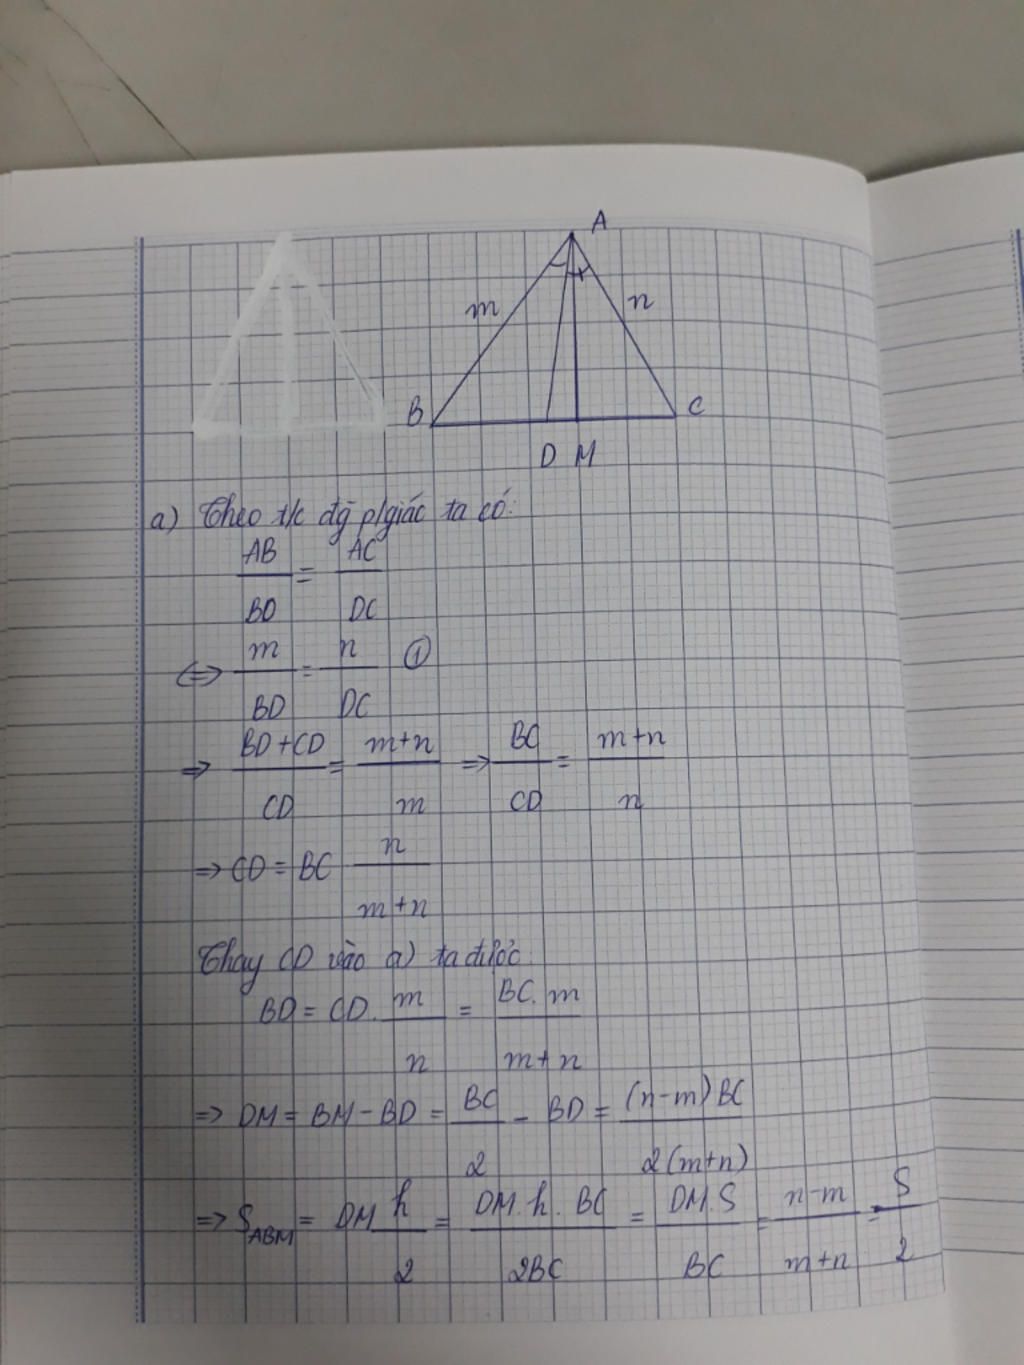 A
m n
B C
D M
a) Theo t/c đg p/giác ta có:
AB/BD = AC/DC
<=> m/BD = n/DC ①
=> (BD+CD)/CD = (m+n)/m => BC/CD = (m+n)/n
=> CD = BC n/(m+n)
Thay CD vào a) ta được:
BD = CD. m/n = BC.m/(m+n)
=> DM = BM - BD = BC/2 - BD = (n-m)BC/2(m+n)
=> S_ABM = DM h/2 = DM.h.BC/2BC = DM.S/BC = n-m/m+n = S/2